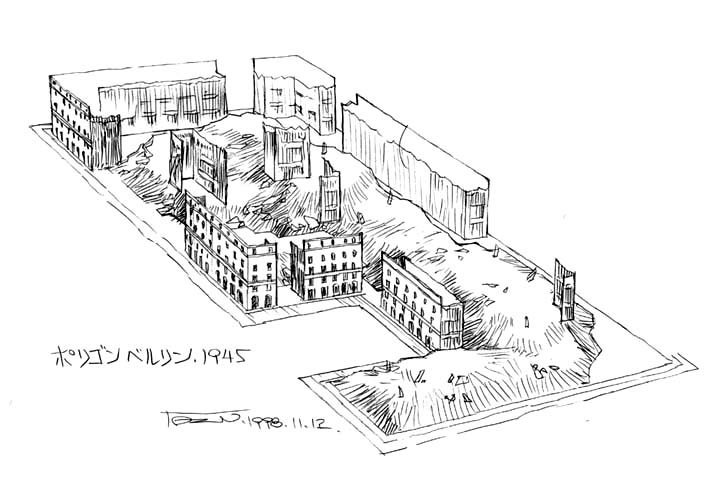 ポリゴン ベルリン.1945
1998.11.12.